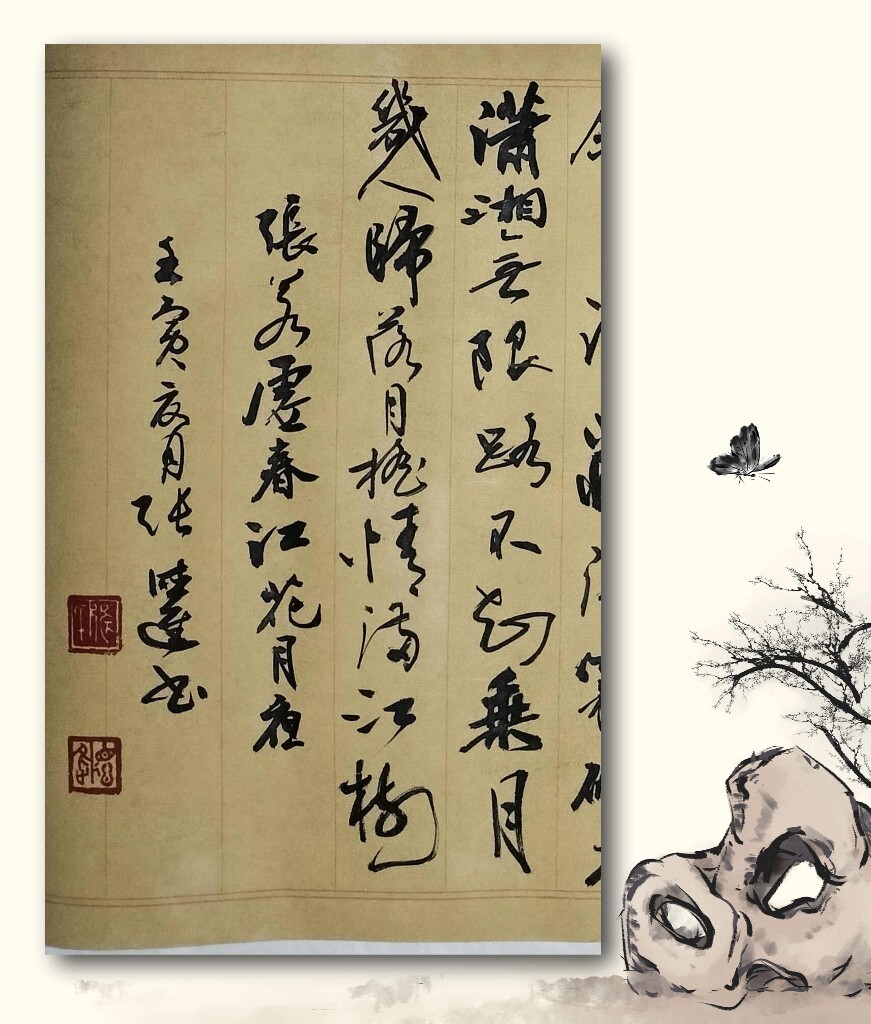 瀟湘無限路不知乘月
幾人歸落月搖情滿江樹
張若虛春江花月夜
壬寅夏月张書